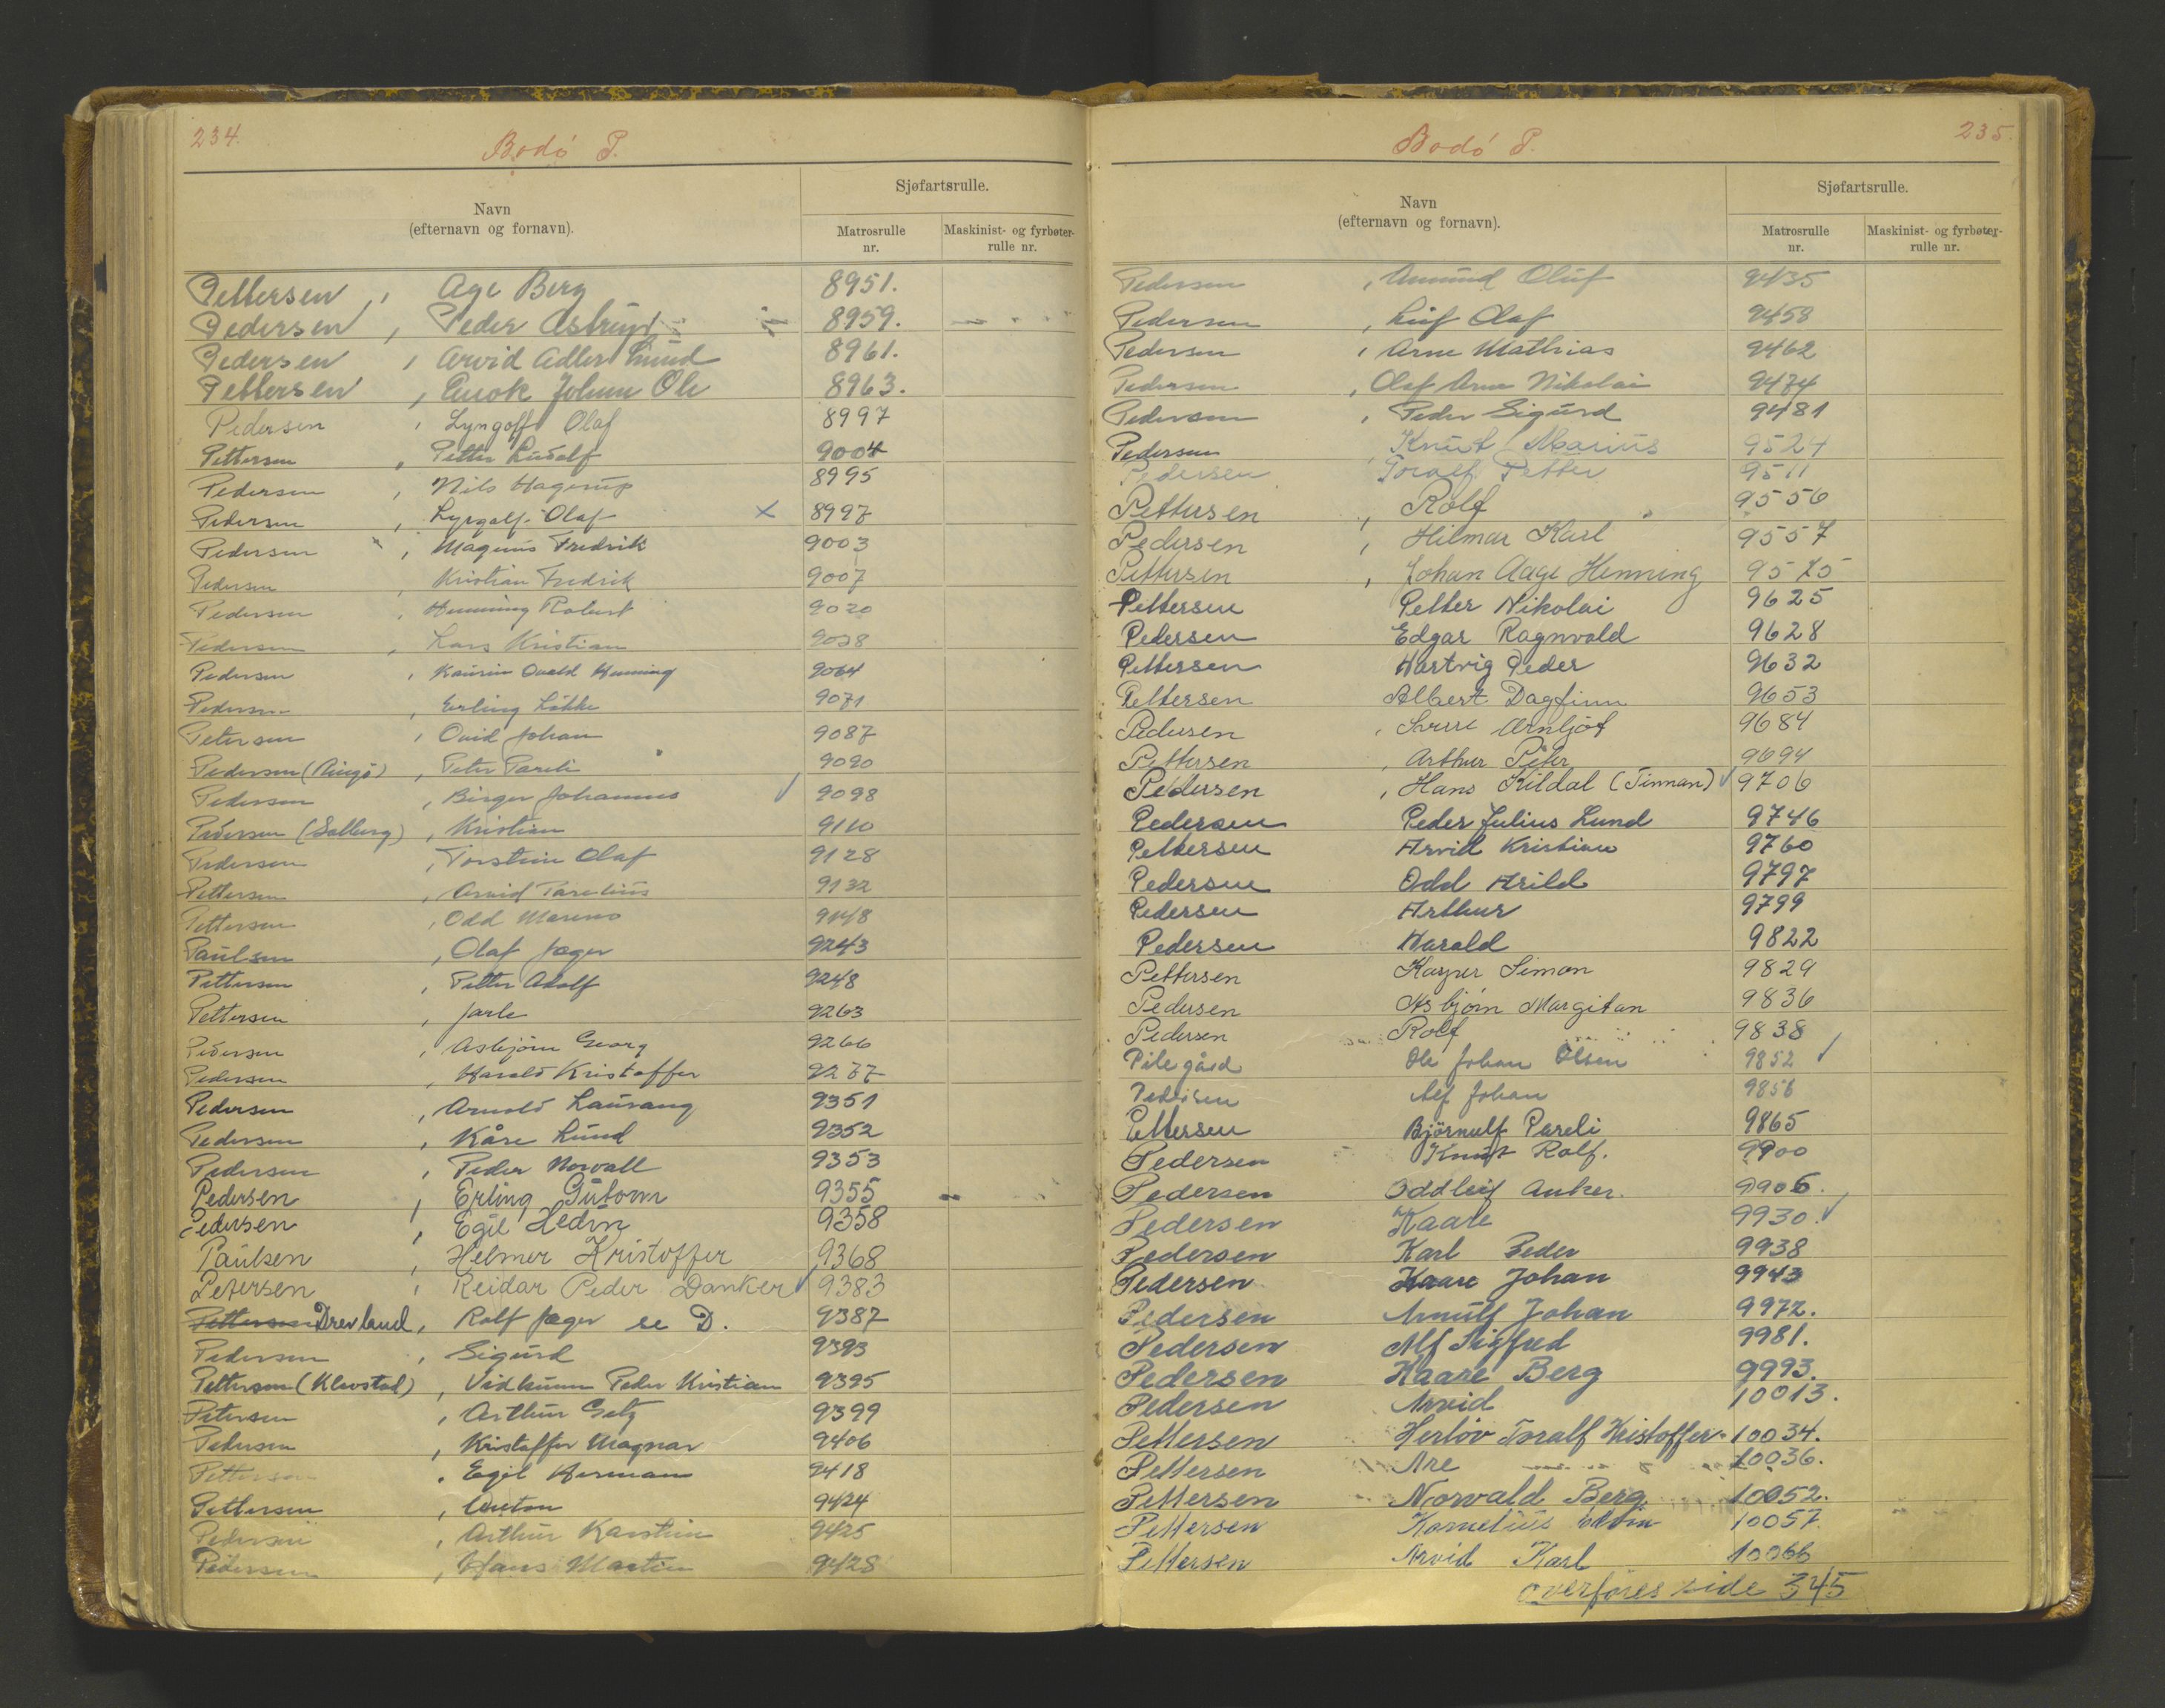 234.
Bodó P.
Navn
(efternavn og fornavn).
Sjøfartsrulle.
Matrosrulle
nr.
Maskinist- og fyrbøter-
rulle nr.
Pettersen, Age Berg 8951.
Pedersen, Peder Astrup 8959.
Pedersen, Arvid Adler Lund 8961.
Pettersen, Enok Johan Ole 8963.
Pedersen, Lyngolf Olaf 8997
Pettersen, Petter Ludolf 9004
Pedersen, Nils Hagerup 8995
Pedersen, Lyngolf Olaf x 8997
Pedersen, Magnus Fredrik 9003
Pedersen, Kristian Fredrik 9007
Pedersen, Henning Robert 9020
Pedersen, Lars Kristian 9038
Pedersen, Kaurin Osvald Henning 9064
Pedersen, Erling Løkke 9071
Petersen, Ovid Johan 9087
Pedersen (Ringø), Peter Pareli 9090
Pedersen, Birger Johannes ✓ 9098
Pedersen (Solberg), Kristian 9110
Pedersen, Torstein Olaf 9128
Pettersen, Arvid Parelius 9132
Pettersen, Odd Mareno 9148
Paulsen, Olaf Jæger 9243
Pettersen, Petter Adolf 9248
Pettersen, Jarle 9263
Pedersen, Asbjörn Georg 9266
Pedersen, Harald Kristoffer 9277
Pedersen, Arnold Laurang 9351
Pedersen, Kåre Lund 9352
Pedersen, Peder Norvall 9353
Pedersen, Erling Gutorm 9355
Pedersen, Egil Hedin 9358
Paulsen, Helmer Kristoffer 9368
Petersen, Reidar Peder Danker ✓ 9383
Pettersen Drevland, Rolf Jæger se D. 9387
Pedersen, Sigurd 9393
Pettersen (Klevstad), Vidkunn Peder Kristian 9395
Petersen, Arthur Getz 9399
Pedersen, Kristoffer Magnar 9406
Pettersen, Egil Herman 9418
Pettersen, Anton 9424
Pedersen, Arthur Karstein 9425
Pedersen, Hans Martin 9428
235.
Bodó P.
Navn
(efternavn og fornavn).
Sjøfartsrulle.
Matrosrulle
nr.
Maskinist- og fyrbøter-
rulle nr.
Pedersen, Amund Oluf 9435
Pedersen, Leif Olaf 9458
Pedersen, Arne Mathias 9462
Pedersen, Olaf Arne Nikolai 9474
Pedersen, Peder Sigurd 9481
Pedersen, Knut Marius 9524
Pedersen Toralf Petter 9511
Pettersen, Rolf 9556
Pedersen, Hilmar Karl 9557
Pettersen, Johan Aage Henning 9575
Pettersen Petter Nikolai 9625
Pedersen Edgar Ragnvald 9628
Pettersen Hartvig Peder 9632
Pettersen Albert Dagfinn 9653
Pedersen, Sverre Arnljot 9684
Pettersen, Arthur Peter 9694
Pedersen, Hans Kildal (Tinman) ✓ 9706
Pedersen Peder Julius Lund 9746
Pettersen Arvid Kristian 9760
Pedersen Odd Arild 9797
Pedersen Arthur 9799
Pedersen Harald 9822
Pettersen Kasper Simon 9829
Pedersen Asbjørn Margitan 9836
Pedersen Rolf 9838
Pilegård Ole Johan Olsen 9852 ✓
Alf Johan 9856
Pettersen Björnulf Pareli 9865
Pedersen Knut Rolf. 9900
Pedersen Oddleif Anker. 9906.
Pedersen Kaare 9930. ✓
Pedersen Karl Peder 9938
Pedersen Kaare Johan 9943
Pedersen Arnulf Johan 9972.
Pedersen Alf Sigfred 9981.
Pedersen Kaare Berg 9993.
Pedersen Arvid 10013.
Pettersen Herlöv Toralf Kristoffer 10034.
Pettersen Are 10036.
Pettersen Norvald Berg 10052.
Pettersen Kornelius Edvin 10057.
Pettersen Arvid Karl 10066
overføres side 345